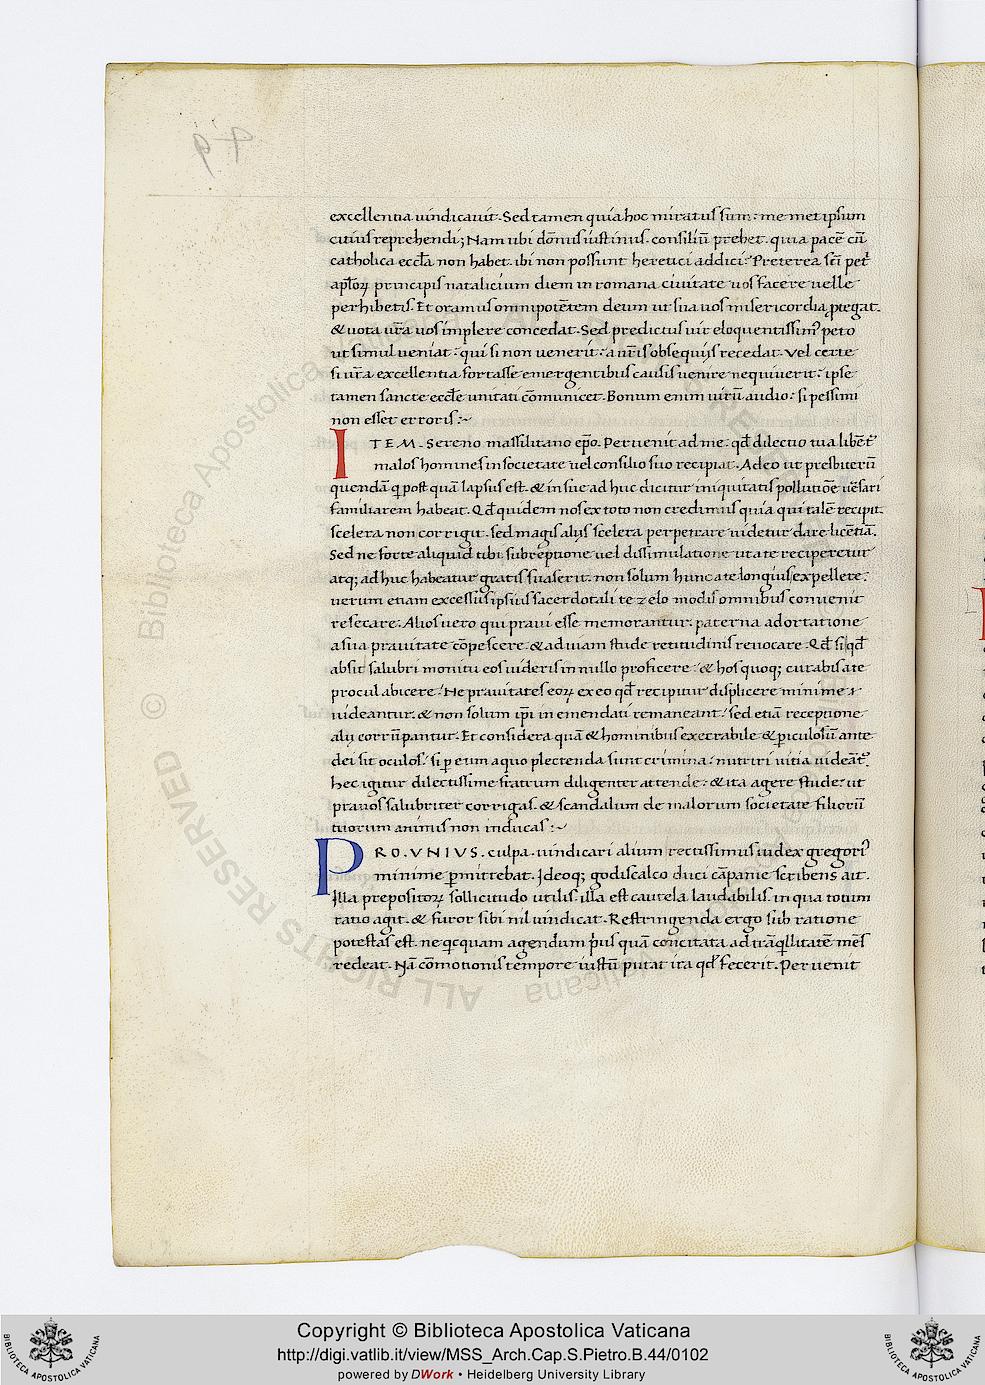 49
excellentia uindicauit. Sed tamen quia hoc miratus sum: me met ipsum
citius reprehendi; Nam ubi dōnus iustinus. consiliū prebet. quia pacē cū
catholica eccl̄a non habet. ibi non possunt heretici addici: Preterea sc̄i pet̄
apl̄oꝝ principis natalicium diem in romana ciuitate uos facere uelle
perhibetis. Et oramus omnipotētem deum ut sua uos misericordia ptegat.
& uota ur̄a uos implere concedat. Sed predictus uir eloquentissimꝰ peto
ut simul ueniat: qui si non uenerit: a nr̄is obsequijs recedat. Vel certe
si ur̄a excellentia fortasse emergentibus causis uenire nequiuerit: ipse
tamen sancte eccl̄e unitati cōmunicet. Bonum enim uirū audio: si pessimi
non esset erroris:~
ITEM. Sereno massilitano ep̄o. Peruenit ad me: qd̄ dilectio tua libēt̄
malos homines in societate uel consilio suo recipiat. Adeo ut presbiterū
quendā q post quā lapsus est. & in sue ad huc dicitur iniquitatis pollutiōe uēsari
familiarem habeat. Qd̄ quidem nos ex toto non credimus quia qui talē recipit.
scelera non corrigit. sed magis alijs scelera perpetrare uidetur dare licētiā.
Sed ne forte aliquid tibi subreptione uel dissimulatione ut a te reciperetur
atq; ad huc habeatur gratis suaserit. non solum hunc a te longius expellere:
uerum etiam excessus ipsius sacerdotali te zelo modis omnibus conuenit
resecare: Alios uero qui praui esse memorantur: paterna adortatione
a sua prauitate cōpescere. & ad uiam stude retitudinis reuocare. Qd̄ si qd̄
absit salubri monitu eos uideris in nullo proficere: & hos quoq; curabis a te
procul abicere: Ne prauitates eoꝝ ex eo qd̄ recipitur displicere minime
uideantur. & non solum ip̄i in emendati remaneant: sed etiā receptione
alij corrūpantur. Et considera quā & hominibus execrabile & piculosū ante
dei sit oculos: si p eum a quo plectenda sunt crimina: nutriri uitia uideāt̄.
hec igitur dilectissime fratrum diligenter attende: & ita agere stude: ut
prauos salubriter corrigas. & scandalum de malorum societate filiorū
tuorum animis non inducas:~
PRO. VNIVS. culpa. uindicari alium rectissimus iudex gregoriꝰ
minime pmittebat. Ideoq; godiscalco duci cāpanie scribens ait.
Illa prepositoꝝ sollicitudo utilis. illa est cautela laudabilis. in qua totum
ratio agit. & furor sibi nil uindicat. Restringenda ergo sub ratione
potestas est. ne qcquam agendum p̄us quā concitata ad trāqllitatē mēs
redeat. Nā cōmotionis tempore iustū putat ita qd̄ fecerit. Peruenit
© Biblioteca Apostolica Vaticana
ALL RIGHTS RESERVED
Copyright © Biblioteca Apostolica Vaticana
http://digi.vatlib.it/view/MSS_Arch.Cap.S.Pietro.B.44/0102
powered by DWork • Heidelberg University Library
BIBLIOTECA APOSTOLICA VATICANA
BIBLIOTECA APOSTOLICA VATICANA